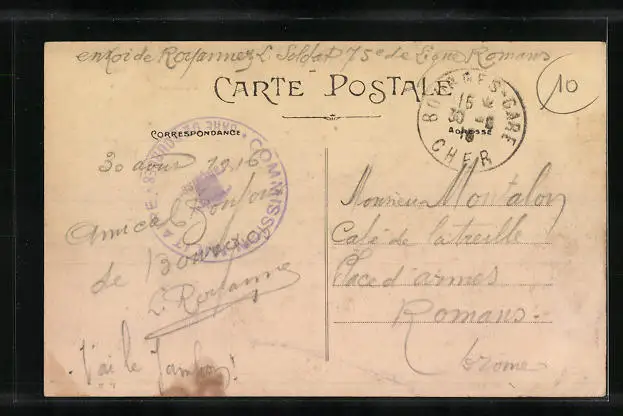 envoi de Royannez L. Soldat 75e de Ligne Romans
CARTE POSTALE
10
BOURGES-GARE
15
30 - 8
16
CHER
CORRESPONDANCE
ADRESSE
COMMISSION
GARE DE BOURGES
30 aout 1916
Amical Bonjour
de Bourges
L. Royannez
J'ai le Jambon!
Monsieur Montalon
Café de la treille
Place d'armes
Romans.
Drome